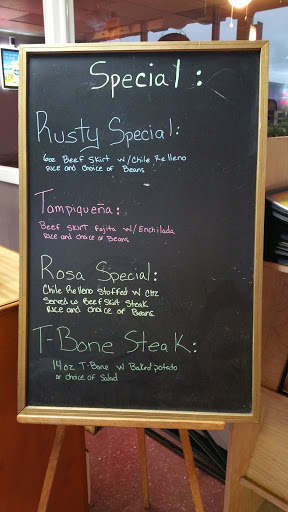 Special:
Rusty Special:
6oz Beef Skirt w/Chile Relleno
Rice and choice of Beans
Tampiqueña:
Beef SKIRT Fajita w/Enchilada
Rice and choice of Beans
Rosa Special:
Chile Relleno Stuffed w Chz
Served w Beef Skirt Steak
Rice and choice of Beans
T-Bone Steak:
14oz T-Bone w Baked potato
or choice of Salad